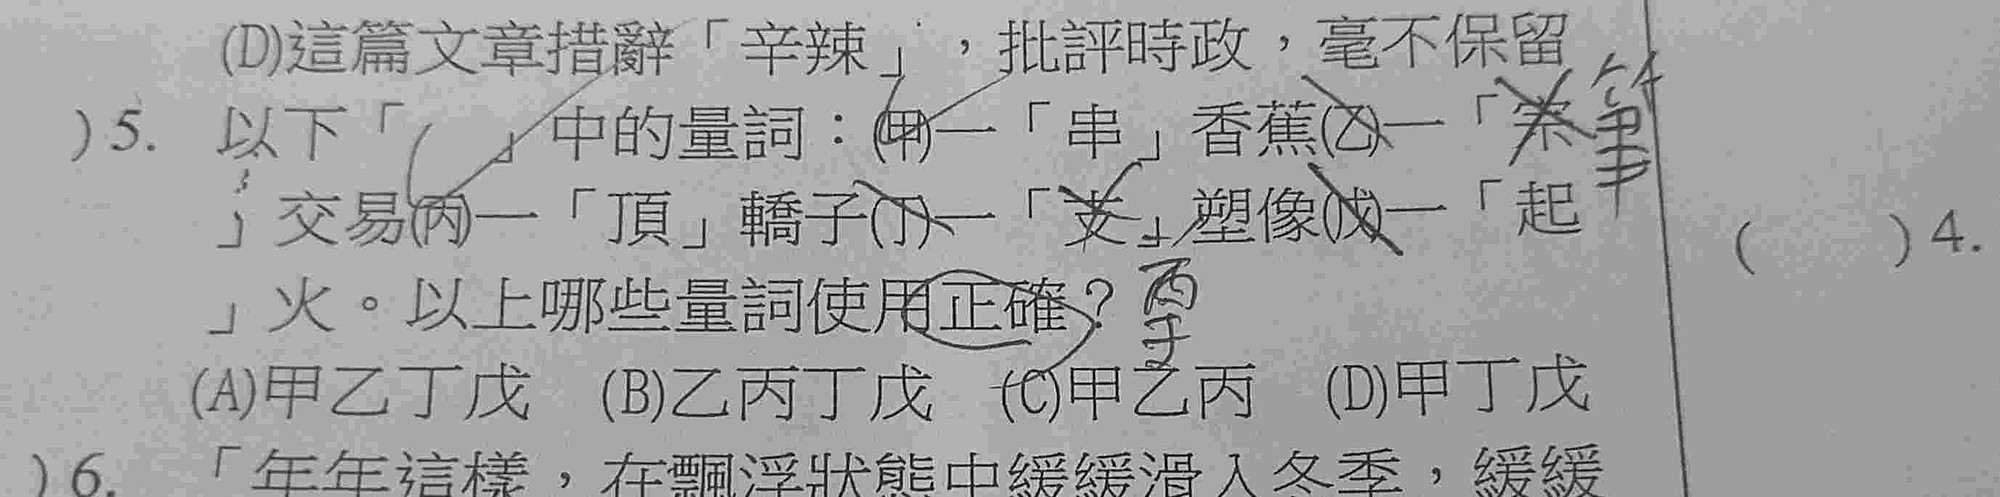 (D)這篇文章措辭「辛辣」，批評時政，毫不保留
)5. 以下「　」中的量詞：(甲)一「串」香蕉(乙)一「宗 筆
」交易(丙)一「頂」轎子(丁)一「支」塑像(戊)一「起
」火。以上哪些量詞使用正確？
(A)甲乙丁戊 (B)乙丙丁戊 (C)甲乙丙 (D)甲丁戊
)6. 「年年這樣，在飄浮狀態中緩緩滑入冬季，緩緩
( )4.